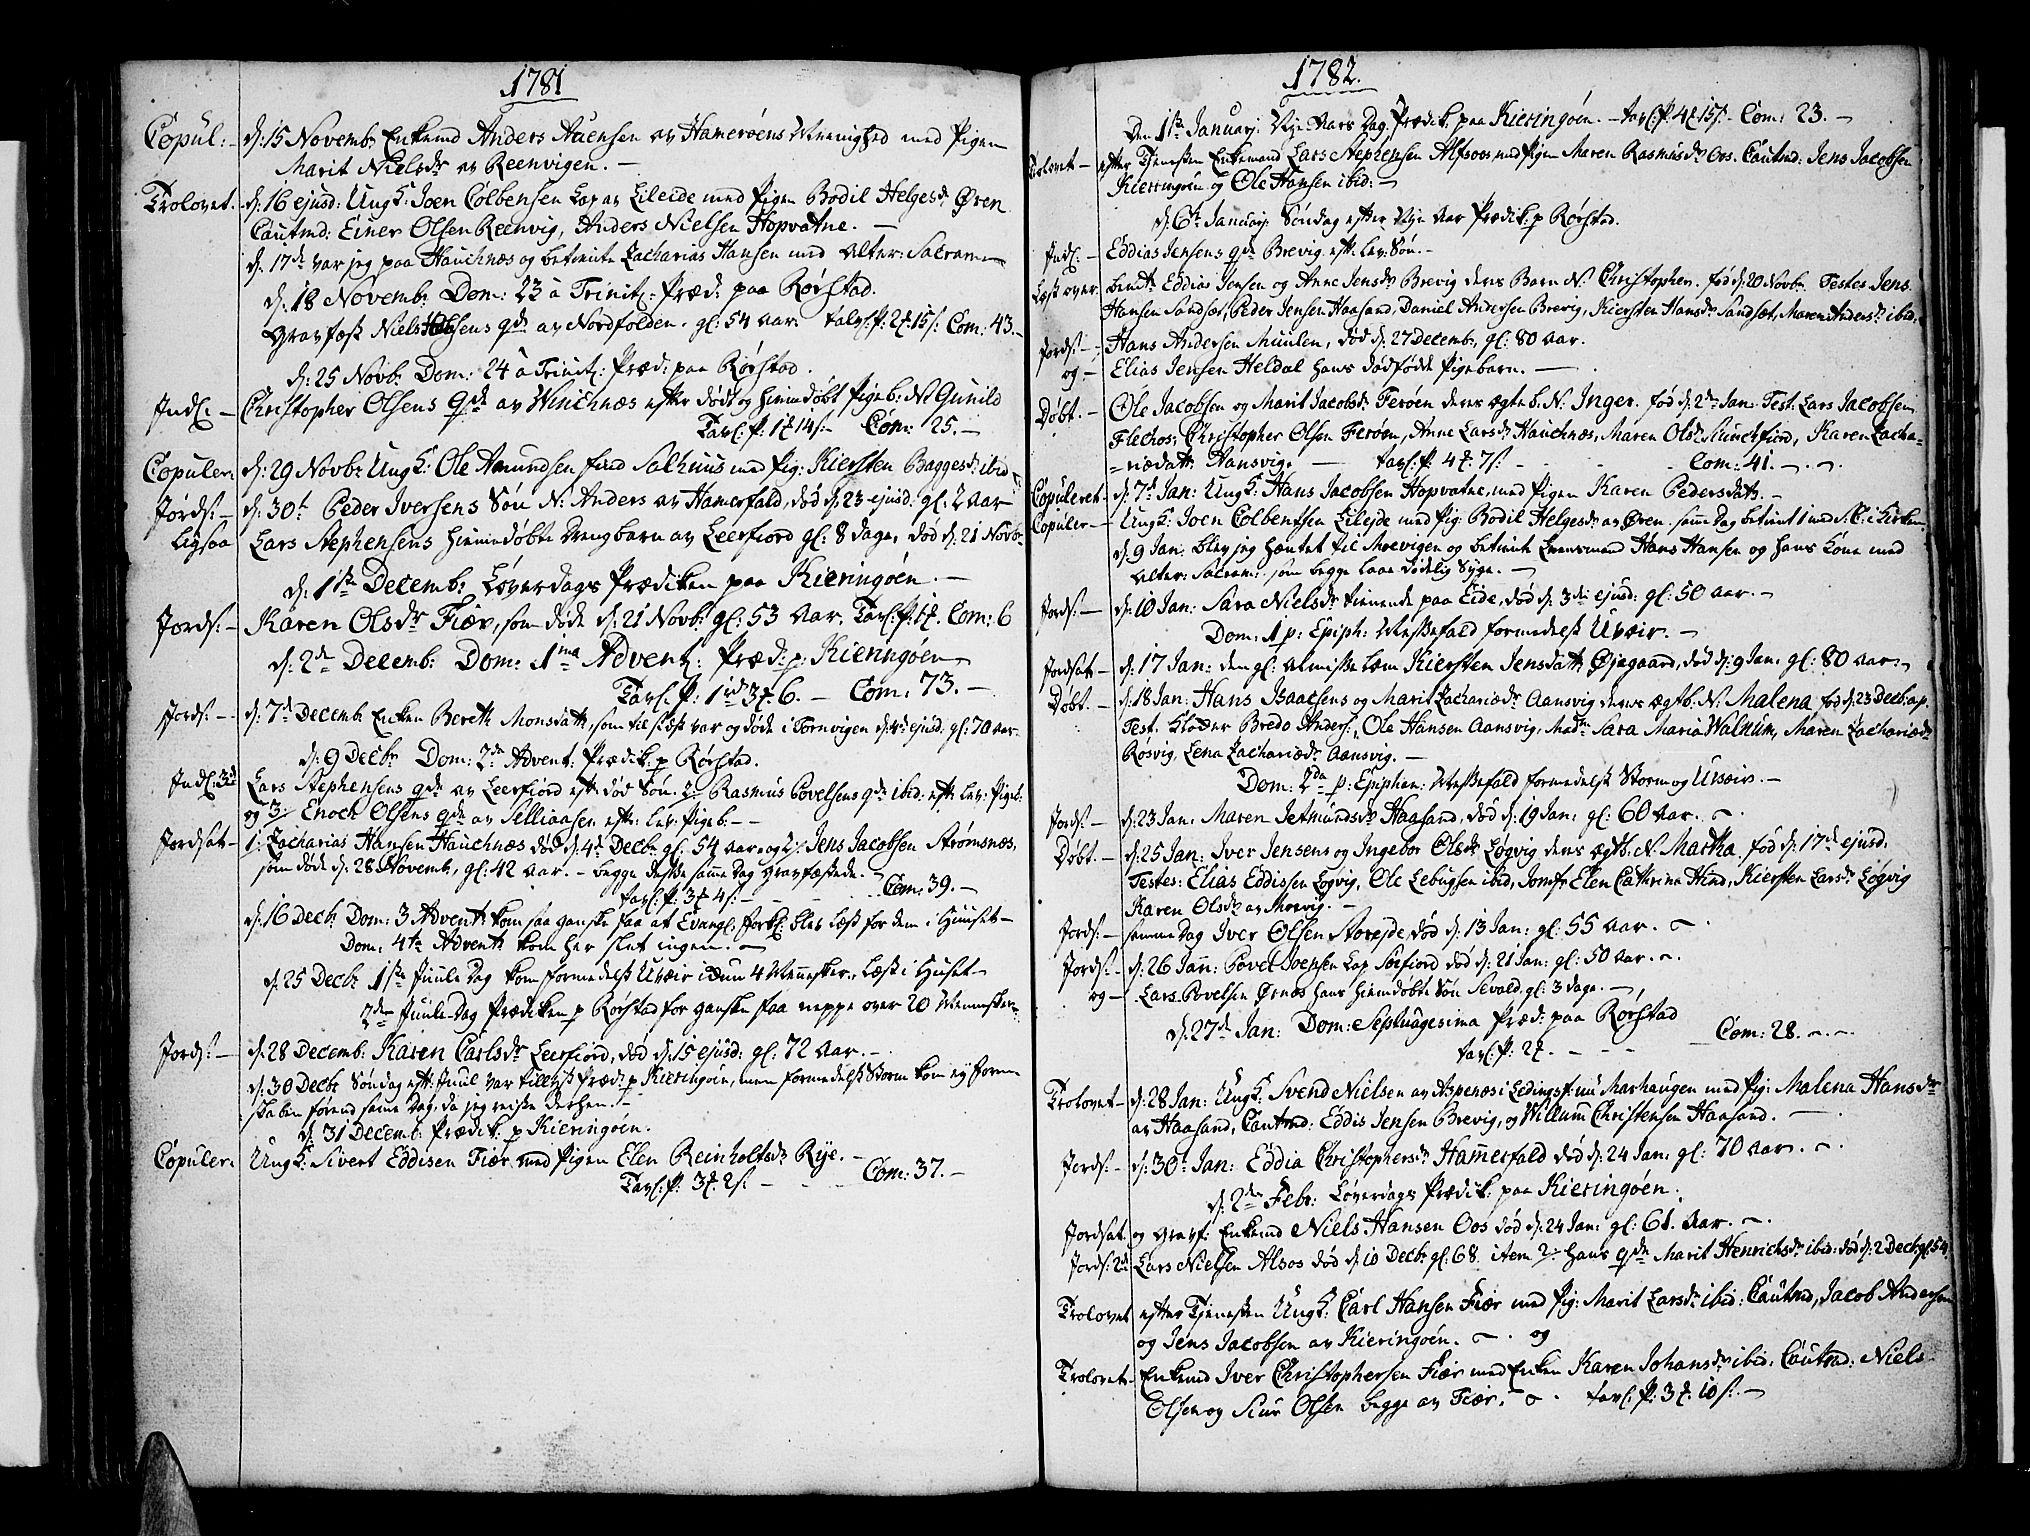 1781
Copul: d: 15 Novemb: Enkemd Anders Aæensen av Hamerøens Menighed med Pigen
Marit Nielsdr av Reenvigen. —
Trolovet. d: 16 ejusd: Ungk: Joen Colbensen Lap av Lileide med Pigen Bodil Helgesdr Øren
Cautmd: Einer Olsen Reenvig, Anders Nielsen Hopvatne. —
d: 17de var jeg paa Hauchnæs og betiente Zacharias Hansen med Alter: Sacram:
d: 18 Novemb: Dom: 23 à Trinit: Præd: paa Rørstad.
Gravfæst Niels Olsens qde av Nordfolden. gl: 54 Aar. Tavl: P: 2 15 s: Com: 43. —
d: 25 Novb: Dom: 24 à Trinit: Præd: paa Rørstad.
Indl: — Christopher Olsens qde av Winchnæs efter død og hiemdøbt Pigeb: N: Gunild
Tavl: P: 1 14 s: — Com: 25. —
Copuler: d: 29 Novb: Ungk: Ole Amundsen Salhuus med Pig: Kiersten Baggesdr ibid:
Jords: — d: 30t Peder Iversens Søn N: Anders av Hamerfald, død d: 23 ejusd: gl: 2 Aar
Ligsaa Lars Stephensens hiemdøbte Drengbarn av Leerfiord gl: 8 dage, død d: 21 Novb:
d: 1ste Decemb: Løverdags Prædiken paa Kieringøen. —
Jords: — Karen Olsdr Fiær, som døde d: 21 Novb: gl: 53 Aar. Tavl: P: 1 Com: 6
d: 2de Decemb: Dom: 1ma Advent: Præd: p: Kieringøen
Tavl: P: 1 rd 3 6. — Com: 73. —
Jords: — d: 7de Decemb: Enken Bereth Monsdatr, som til sidst var og døde i Tornvigen ejusd: gl: 70 Aar.
d: 9 Decbr: Dom: 2de Advent: Prædik: p Rørstad.
Indl: 3de Lars Stephensens qde av Leerfiord eft: død Søn. 2, Rasmus Povelsens qde ibid: eft: lev: Pigeb:
og 3, Enoch Olsens qde av Selliaasen eft: lev: Pigeb: —
Jordsat — 1, Zacharias Hansen Hauchnæs død d: 4de Decbr gl: 54 Aar og 2, Jens Jacobsen Strømsnæs,
som døde d: 28 Novemb, gl: 42 Aar. — begge disse samme Dag gravfæstede. —
Tavl: P: 3 4 s: — Com: 39. —
d: 16 Decbr Dom: 3 Advent: kom saa ganske faa at Evangl: forkl: blev læst for dem i Huuset —
Dom: 4ta Advent: kom her slet ingen. —
d: 25 Decbr 1ste Juule Dag kom formedelst Uveir icun 4 Mennesker, læst i Huset —
2den Juule-Dag Prædiken p Rørstad for ganske faa neppe over 20 Mennesker.
Jords: — d: 28 Decemb: Karen Carlsdr Leerfiord, død d: 15 ejusd: gl: 72 Aar. —
d: 30 Decbr Søndag eft: Juul var tillyst Præd: p Kieringøen, men formedelst Storm kom ej
førend same Dag, da jeg reiste derhen. —
d: 31 Decemb: Prædik: p Kieringøen.
Copuler: Ungk: Sivert Eddisen Fiær med Pigen Elen Reinholtsdr Rÿe. —
Tavl: P: 3 2 s: — Com: 37. —
1782.
Den 1ste Januarj Nye Aars Dag Prædik: paa Kieringøen. — Tavl: P: 4 15 s: — Com: 23. —
Trolovet — efter Tjenesten Enkemand Lars Stephensen Alfsoos med Pigen Maren Rasmusdr Oos. Cautmd: Jens Jacobsen
Kieringøen og Ole Hansen ibid: —
d: 6te Januarj Søndag efter Nye Aar Prædik: p Rørstad.
Indl: — Eddias Jensens qde Brevig eft: lev: Søn. —
Læst over bemte Eddias Jensen og Anne Jensdr Brevig deres Barn N: Christopher. fød d: 20 Novbr Testes Jens
Hansen Sandsæt, Peder Jensen Haasand, Daniel Andersen Brevig, Kiersten Hansdr Sandsæt, Maren Andersdr ibid:
Jords: — Hans Andersen Muulen, død d: 27 Decemb, gl: 80 Aar.
og — Elias Jensen Heldal hans dødfødde Pigebarn. —
Døbt. — Ole Jacobsen og Marit Jacobsdr Ferøen deres ægte b: N: Inger. fød d: 2de Jan: Test: Lars Jacobsen
Flechos, Christopher Olsen Ferøen, Anne Larsdr Hauchnæs, Maren Olsdr Munchfiord, Karen Zacha-
=riædatr Aansvig. — Tavl: P: 4 7 s: — Com: 41. —
Copuleret — d: 7de Jan: Ungk: Hans Jacobsen Hopvatne, med Pigen Karen Pedersdatr. —
Copuler — Ungk: Joen Colbentsen Lilejde med Pig: Bodil Helgesdr av Øren. samme Dag betient 1 med S: C: i Kirken
d: 9 Jan: blev jeg hæntet til Mørevigen og betiente Lensmand Hans Hansen og hans Kone med
Alter: Sacram: som begge laae dødelig Syge. —
Jords: — d: 10 Jan: Sara Nielsdr tienende paa Eide, død d: 3de ejusd: gl: 50 Aar. —
Dom: 1 p: Epiph: Messefald formedelst Uveir. —
Jordsat — d: 17 Jan: den gl: Almisse Lem Kiersten Jensdatr Øjegaard, død d: 9 Jan: gl: 80 Aar. —
Døbt. — d: 18 Jan: Hans Isaacsens og Marit Zachariædr Aansvig deres ægtb: N: Malena fød d: 23 Decb: a.p.
Test. Bredo Anders: Ole Hansen Aansvig, Madm Sara Maria Walnum, Maren Zachariædr
Røsvig, Lena Zachariædr Aansvig. —
Dom: 2da p: Epiphan: Messefald formedelst Storm og Uveir. —
Jords: — d: 23 Jan: Maren Jetmundsdr Haasand, død d: 19 Jan: gl: 60 Aar. —
Døbt. — d: 25 Jan: Iver Jensens og Ingebor Olsdr Løgvig deres ægtb: N: Martha. fød d: 17de ejusd:
Testes: Elias Eddissen Løgvig, Ole Lebugsen ibid, Jomfr Elen Cathrina Hind, Kiersten Larsdr Løgvig
Karen Olsdr av Mørvig. —
Jords: — samme Dag Iver Olsen Storejde død d: 13 Jan: gl: 55 Aar. —
Jords: — d: 26 Jan: Povel Ivensen Lap Sørfiord død d: 21 Jan: gl: 50 Aar. —
og — Lars Povelsen Ørnes hans hiemdøbte Søn Sevald gl: 3 dage. —
d: 27de Jan: Dom: Septuagesima Præd: paa Rørstad
Tavl: P: 2 — Com: 28. —
Trolovet — d: 28 Jan: Ungk: Svend Nielsen av Aspenæs i Ledingsf: nu Marhaugen med Pig: Malena Hansdr
av Haasand, Cautmd: Eddis Jensen Brevig, og Willum Christensen Haasand. —
Jords: — d: 30t Jan: Eddia Christophersdr Hammerfald død d: 24 Jan: gl: 70 Aar. —
d: 2den Febr: Løverdags Prædik: paa Kieringøen.
Jordsat og gravf: Enkemd Niels Hansen Oos død d: 24 Jan: gl: 61. Aar. —
Jords: 2de Lars Nielsen Alsos død d: 10 Decbr gl: 68. item 2, hans qde Marit Henrichsdr ibid: død d: 2 Decbr gl: 54
Trolovet efter Tjenesten Ungk: Carl Hansen Fiær med Pig: Marit Larsdr ibid: Cautmd, Jacob Andersen
og Jens Jacobsen av Kieringøen. — og
Trolovet — Enkemd Iver Christophersen Fiær med Enken Karen Johansdr ibid: Cautmd: Niels
Olsen og Siur Olsen begge av Fiær. — Tavl: P: 3 10 s: —